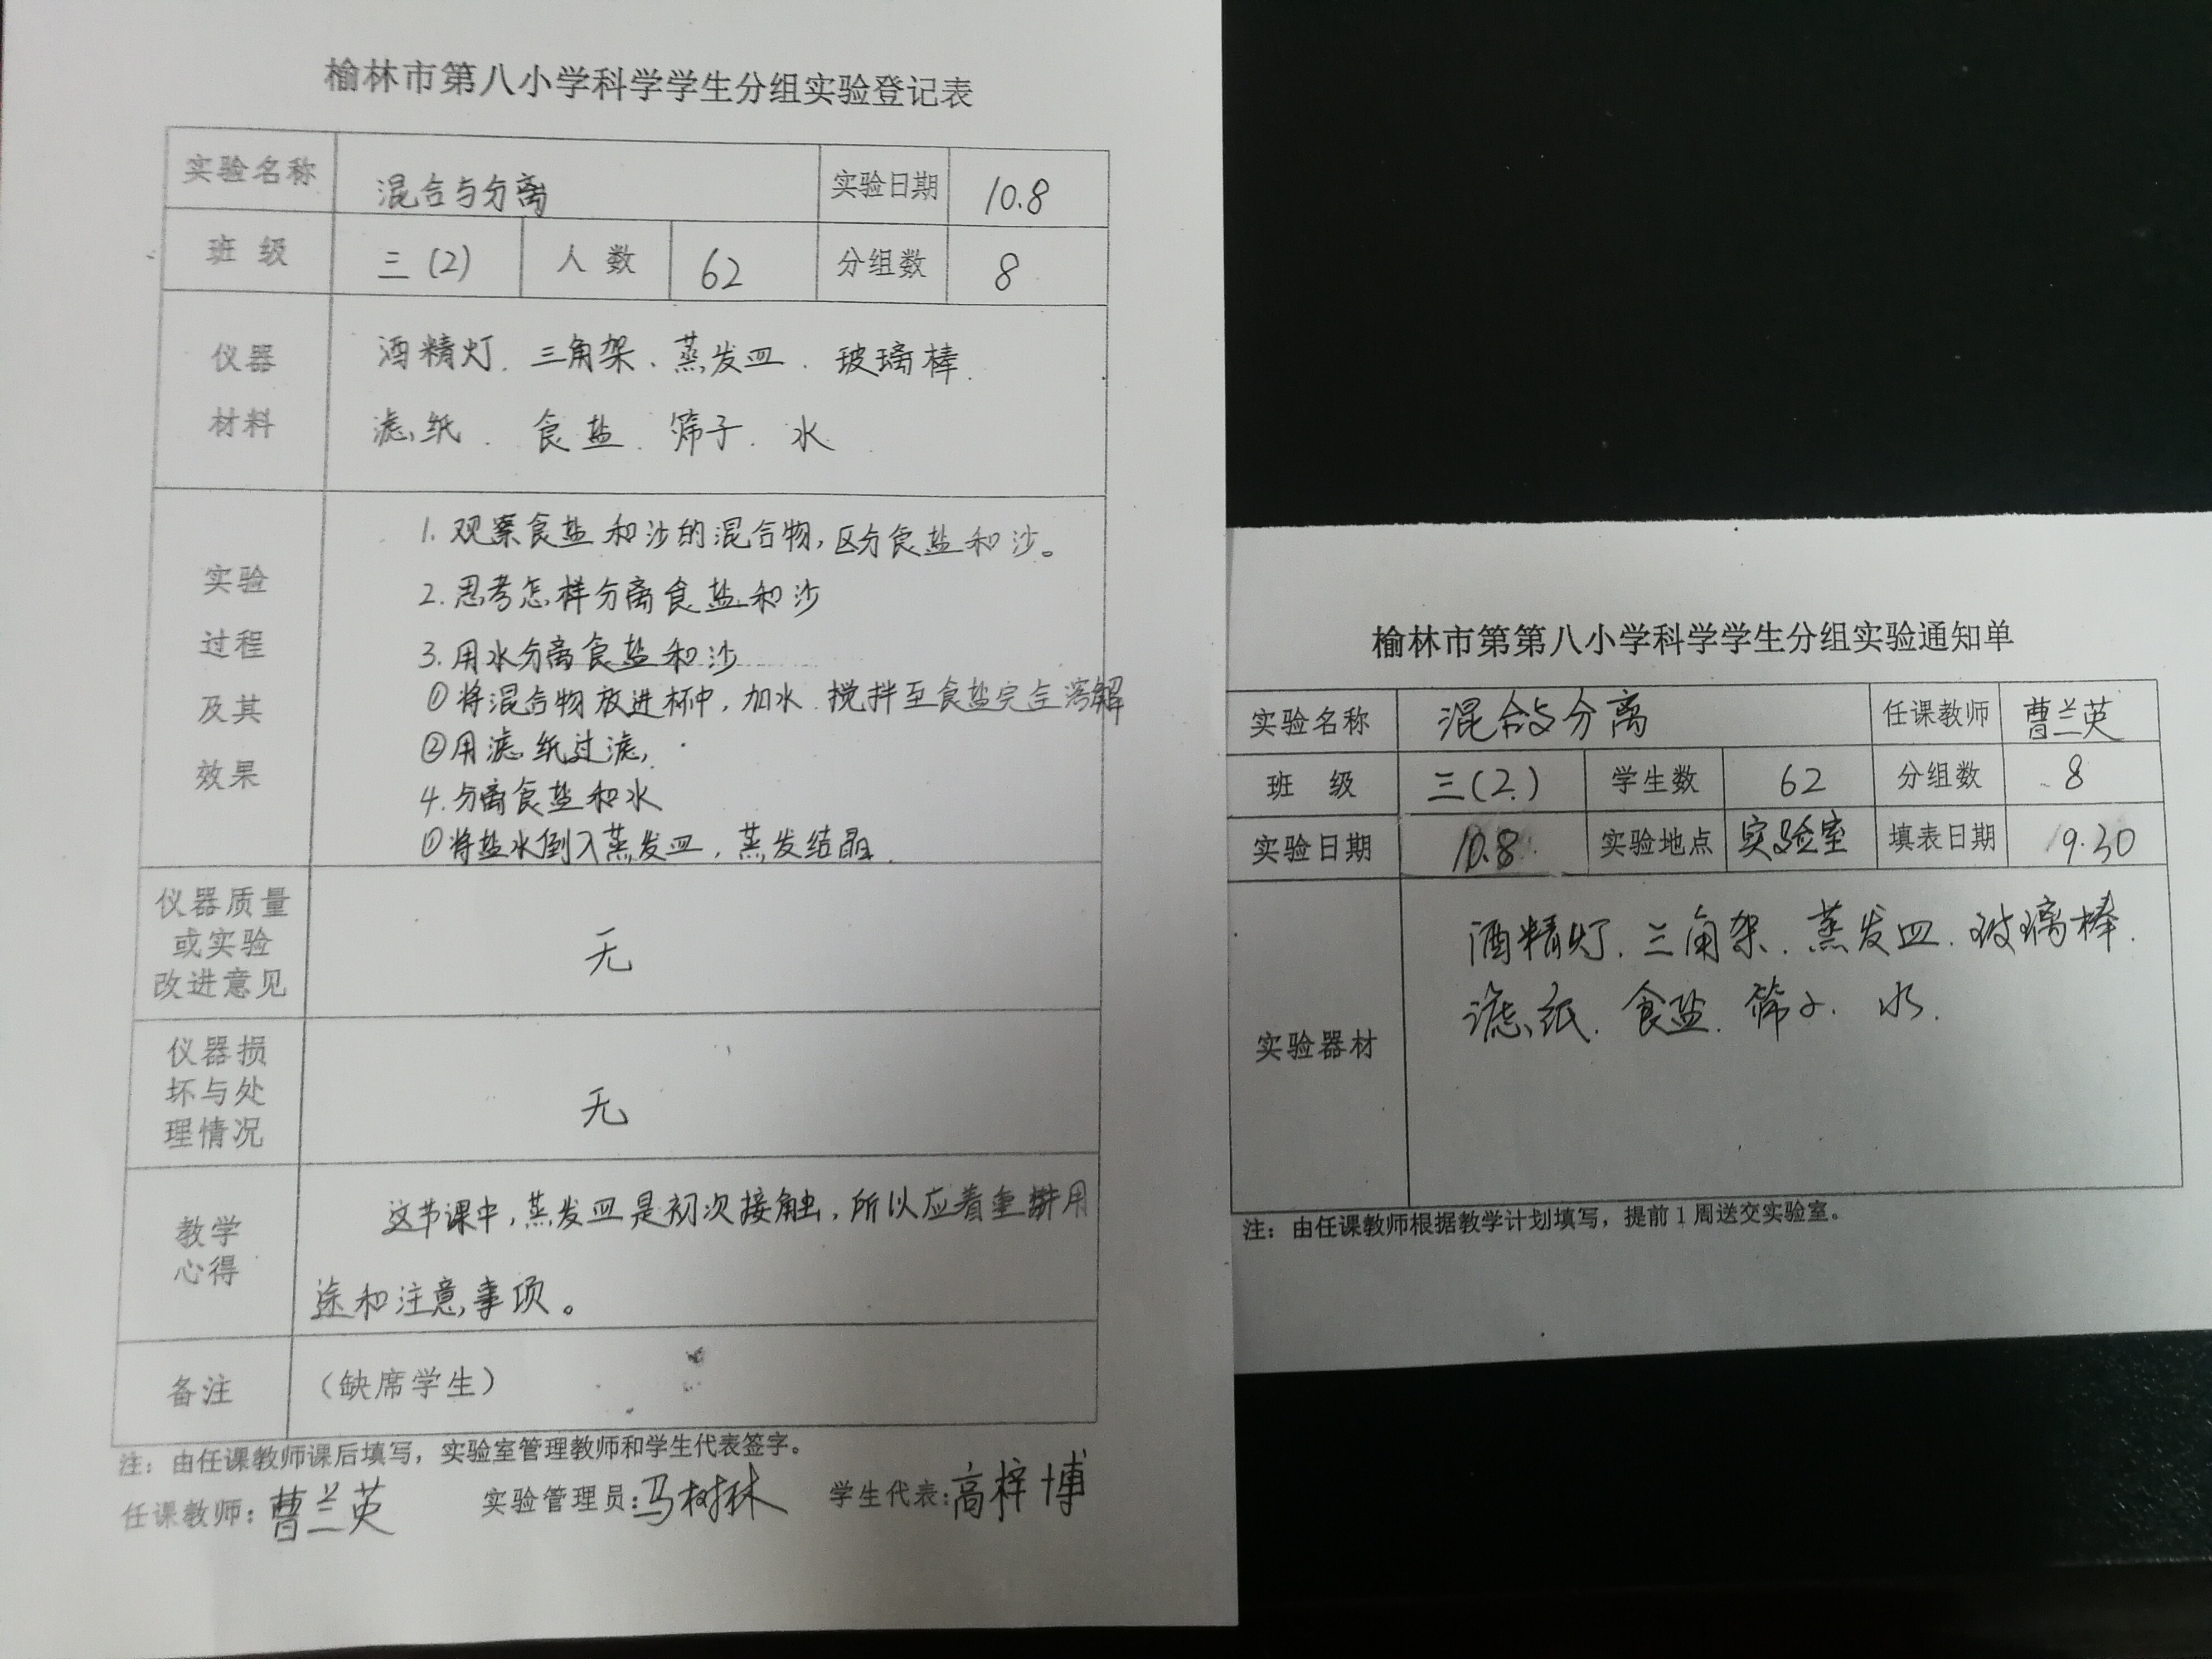 榆林市第八小学科学学生分组实验登记表
实验名称 混合与分离 实验日期 10.8
班 级 三(2) 人 数 62 分组数 8
仪器
材料
酒精灯、三角架、蒸发皿、玻璃棒、
滤纸、食盐、筛子、水
实验
过程
及其
效果
1.观察食盐和沙的混合物,区分食盐和沙。
2.思考怎样分离食盐和沙
3.用水分离食盐和沙
①将混合物放进杯中,加水、搅拌至食盐完全溶解
②用滤纸过滤,
4.分离食盐和水
①将盐水倒入蒸发皿,蒸发结晶.
仪器质量
或实验
改进意见
无
仪器损
坏与处
理情况
无
教学
心得
这节课中,蒸发皿是初次接触,所以应着重讲用
途和注意事项。
备注 (缺席学生)
注:由任课教师课后填写,实验室管理教师和学生代表签字。
任课教师:曹兰英 实验管理员:马树林 学生代表:高梓博
榆林市第第八小学科学学生分组实验通知单
实验名称 混合与分离 任课教师 曹兰英
班 级 三(2) 学生数 62 分组数 8
实验日期 10.8 实验地点 实验室 填表日期 9.30
实验器材
酒精灯、三角架、蒸发皿、玻璃棒.
滤纸、食盐、筛子、水.
注:由任课教师根据教学计划填写,提前1周送交实验室。